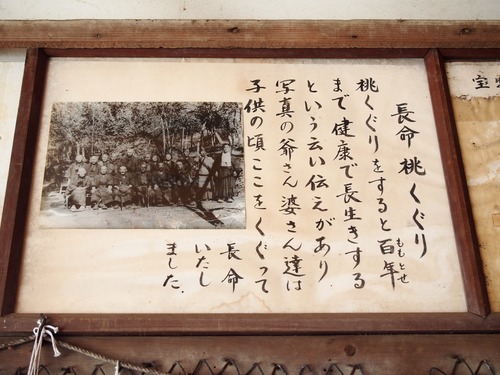 長命桃くぐり
桃くぐりをすると百年
ももとせ
まで健康で長生きする
という云い伝えがあり
写真の爺さん婆さん達は
子供の頃ここをくぐって
長命
いたし
ました。
宝